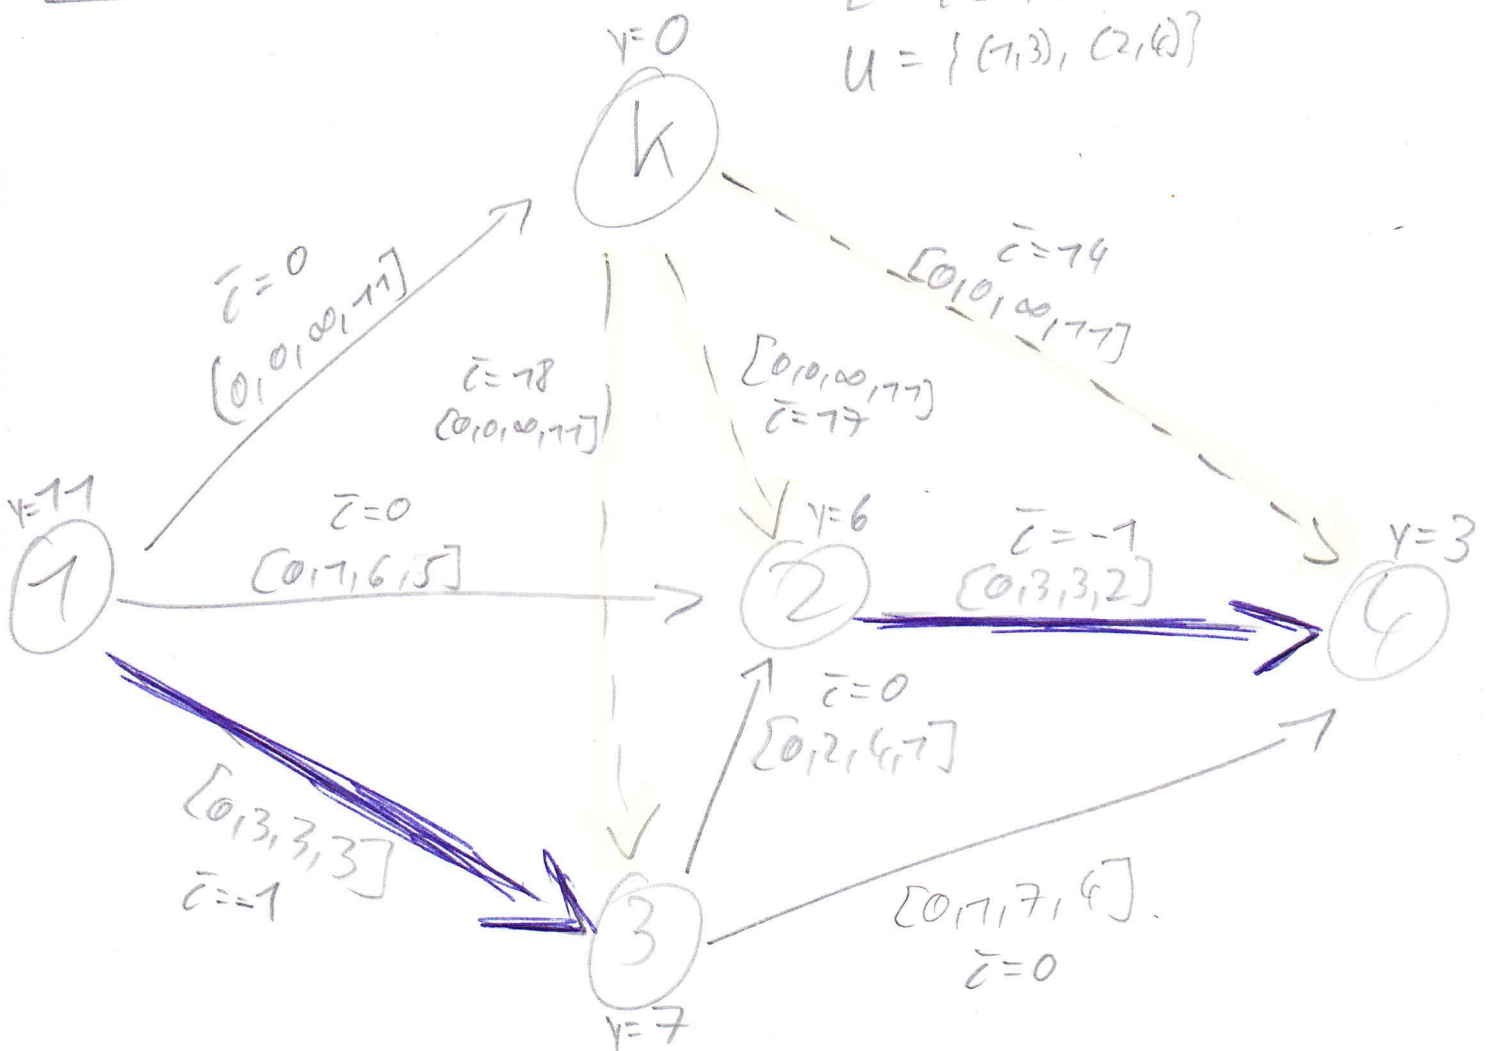 y=0
U = {(1,3), (2,4)}
k
c̄=0
[0,0,∞,11]
c̄=14
[0,0,∞,11]
c̄=18
[0,0,∞,11]
[0,0,∞,11]
c̄=17
y=11
1
c̄=0
[0,1,6,5]
y=6
2
c̄=-1
[0,3,3,2]
y=3
4
c̄=0
[0,2,4,1]
[0,3,3,3]
c̄=-1
3
y=7
[0,1,7,4].
c̄=0